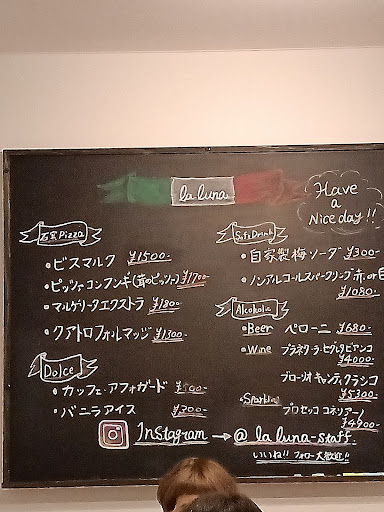 la luna
Have
a
Nice day!!
石窯Pizza
・ビスマルク ¥1500-
・ピッツァ コン フンギ(茸のピッツァ) ¥1700
・マルゲリータエクストラ ¥1800-
・クアトロフォルマッジ ¥1300-
Dolce
・カッフェ・アフォガード
・バニラアイス ¥200-
Soft Drink
・自家製梅ソーダ ¥300-
・ノンアルコールスパークリング 赤.or白
¥1080-
Alcoholic
・Beer ペローニ ¥680-
・Wine
ビアンコ
¥4000-
キャンティクラシコ
¥5300-
・Sparkling
プロセッコ コネリアーノ
¥4900-
Instagram → @ la luna-staff.
いいね!! フォロー大歓迎!!